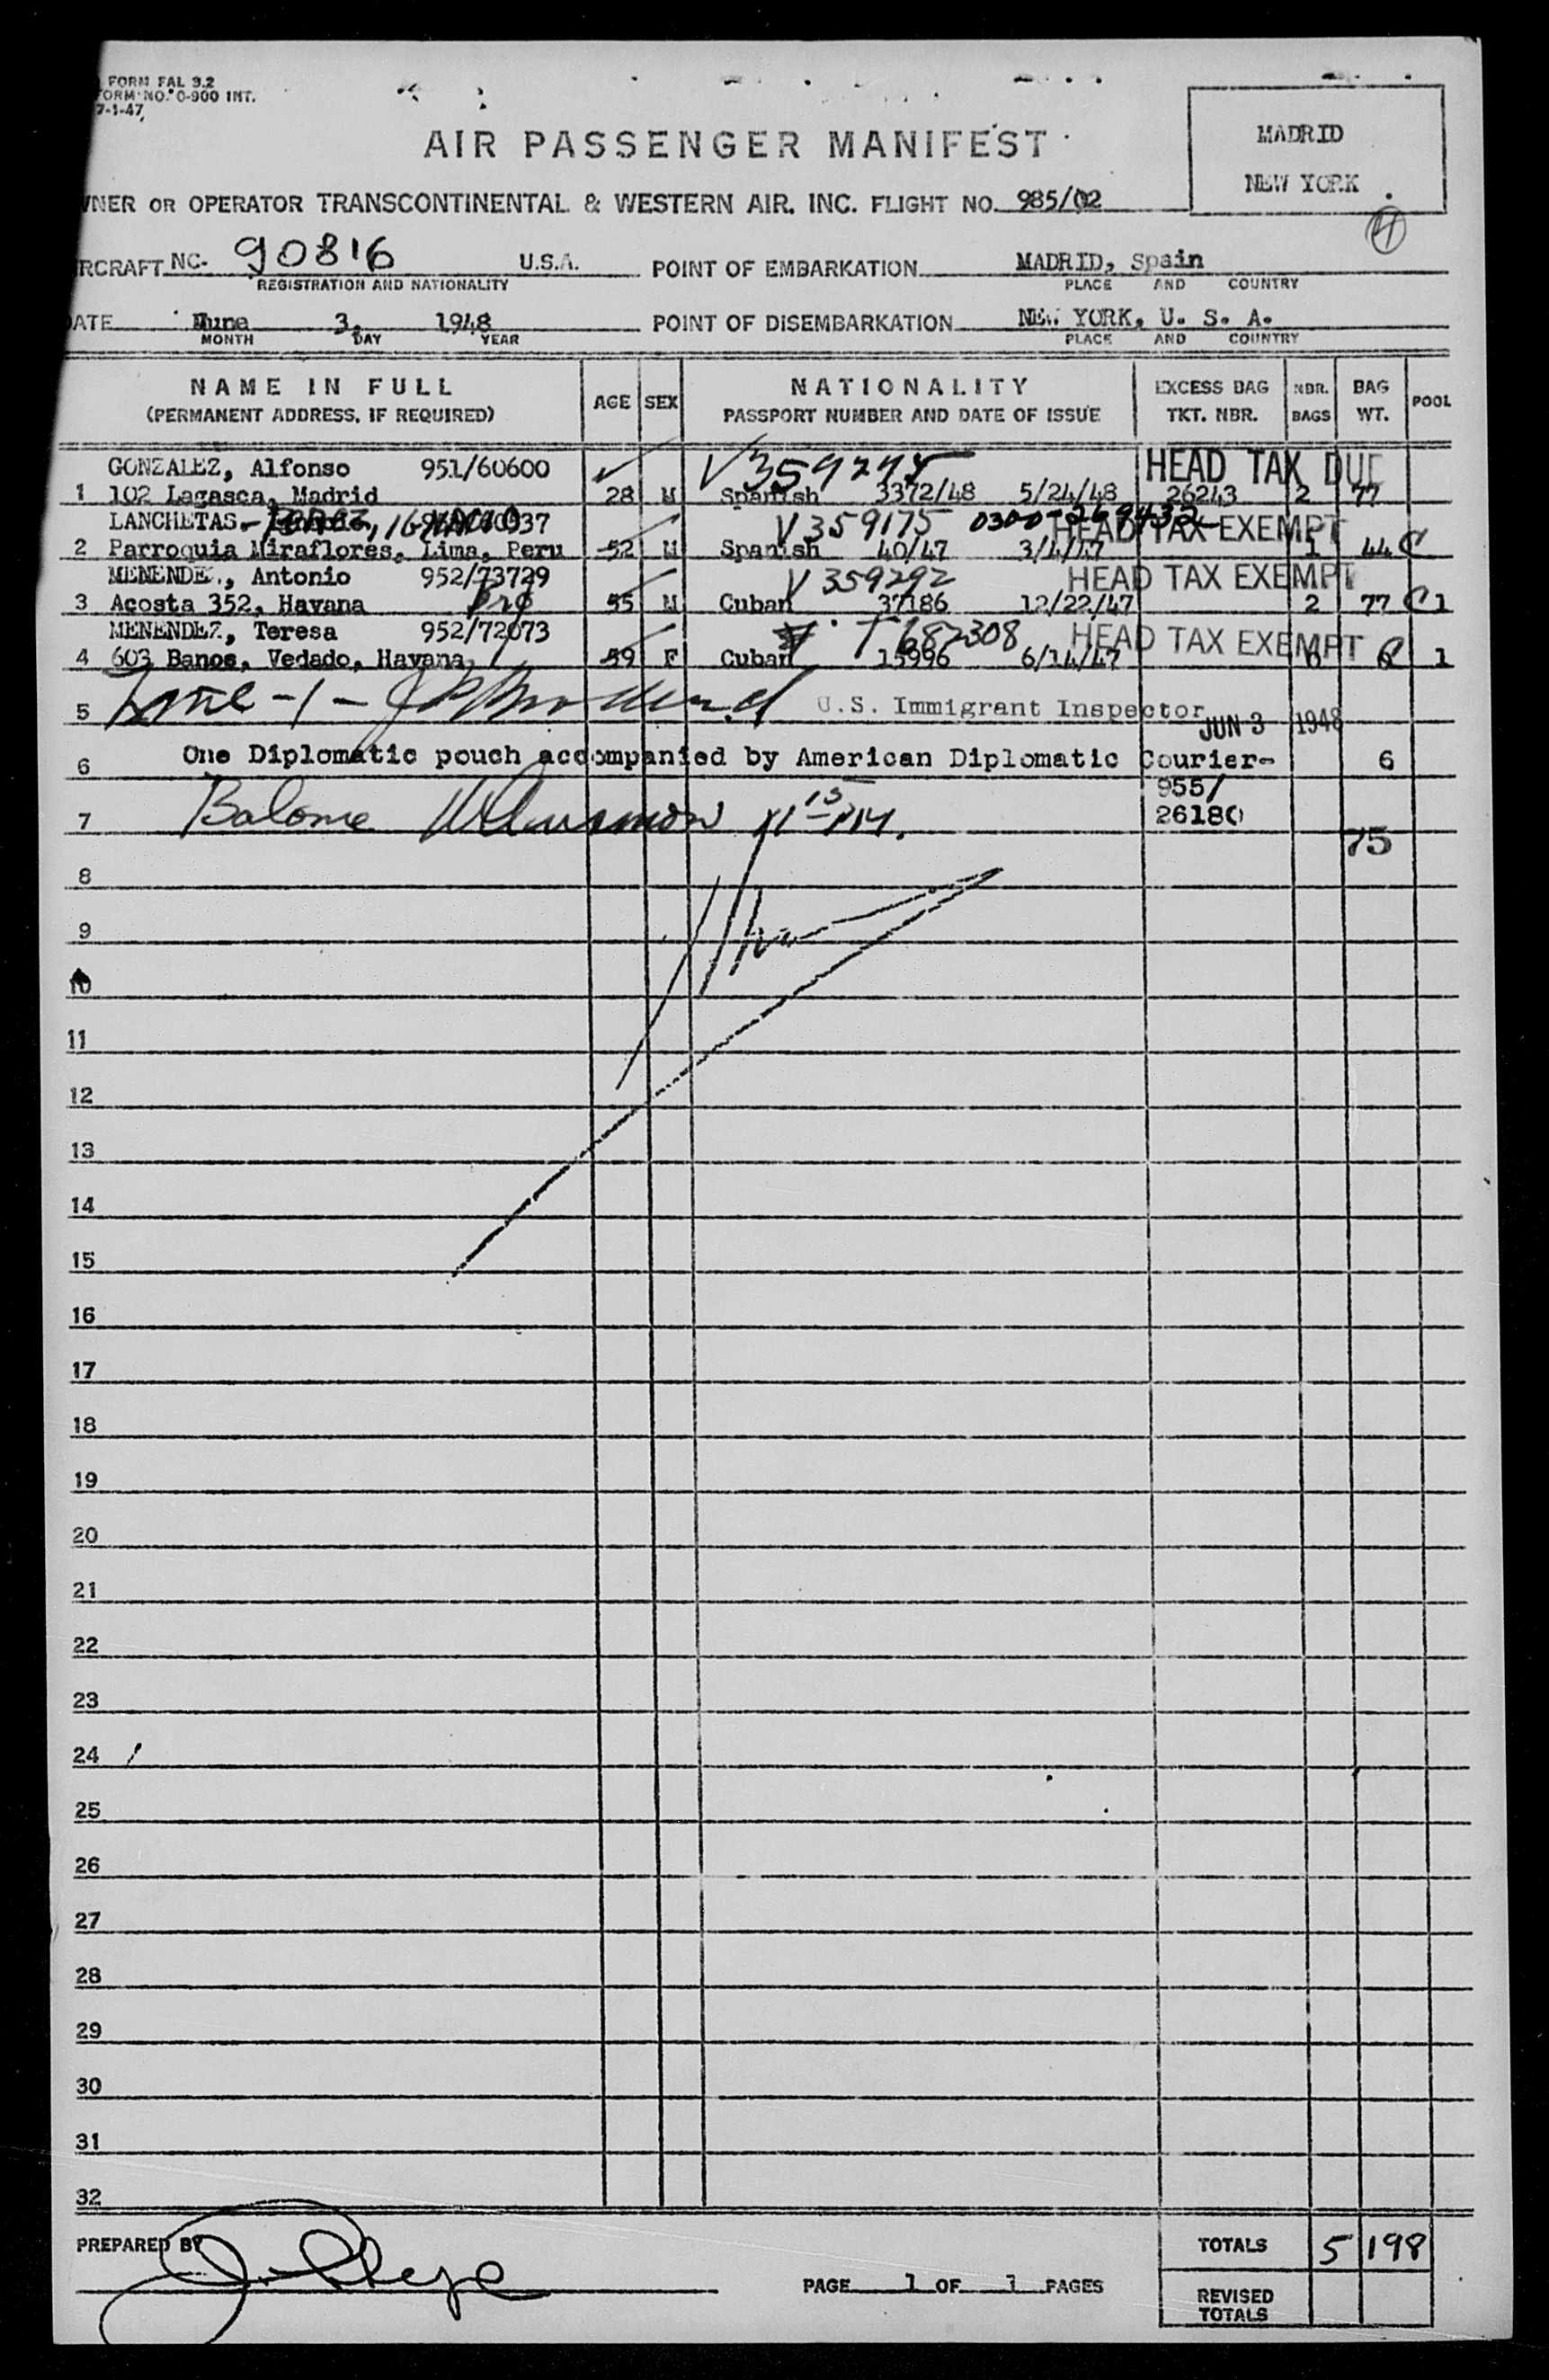 FORM FAL 3.2
FORM NO. O-900 INT.
7-1-47
AIR PASSENGER MANIFEST
MADRID
NEW YORK
OWNER OR OPERATOR TRANSCONTINENTAL & WESTERN AIR. INC. FLIGHT NO. 985/02
4
AIRCRAFT NC. 90816 U.S.A. POINT OF EMBARKATION MADRID, Spain
REGISTRATION AND NATIONALITY PLACE AND COUNTRY
DATE June 3, 1948 POINT OF DISEMBARKATION NEW YORK, U. S. A.
MONTH DAY YEAR PLACE AND COUNTRY
NAME IN FULL AGE SEX NATIONALITY EXCESS BAG NBR. BAG POOL
(PERMANENT ADDRESS, IF REQUIRED) PASSPORT NUMBER AND DATE OF ISSUE TKT. NBR. BAGS WT.
GONZALEZ, Alfonso 951/60600 HEAD TAX DUE
1 102 Lagasca, Madrid 28 M Spanish 3372/48 5/24/48 26243 2 77
LANCHETAS, IGNACIO V359175 0300-269432 HEAD TAX EXEMPT
2 Parroquia Miraflores, Lima, Peru 52 M Spanish 40/47 3/4/47 1 44 C
MENENDEZ, Antonio 952/73729 V 359292 HEAD TAX EXEMPT
3 Acosta 352, Havana 55 M Cuban 37186 12/22/47 2 77 C 1
MENENDEZ, Teresa 952/72073 T 682308 HEAD TAX EXEMPT
4 603 Banos, Vedado, Havana, 59 F Cuban 15996 6/14/47 1
5 Line -1- U.S. Immigrant Inspector JUN 3 1948
6 One Diplomatic pouch accompanied by American Diplomatic Courier- 6
955/
7 26180
75
8
9
10
11
12
13
14
15
16
17
18
19
20
21
22
23
24
25
26
27
28
29
30
31
32
PREPARED BY TOTALS 5 198
PAGE 1 OF 1 PAGES
REVISED
TOTALS